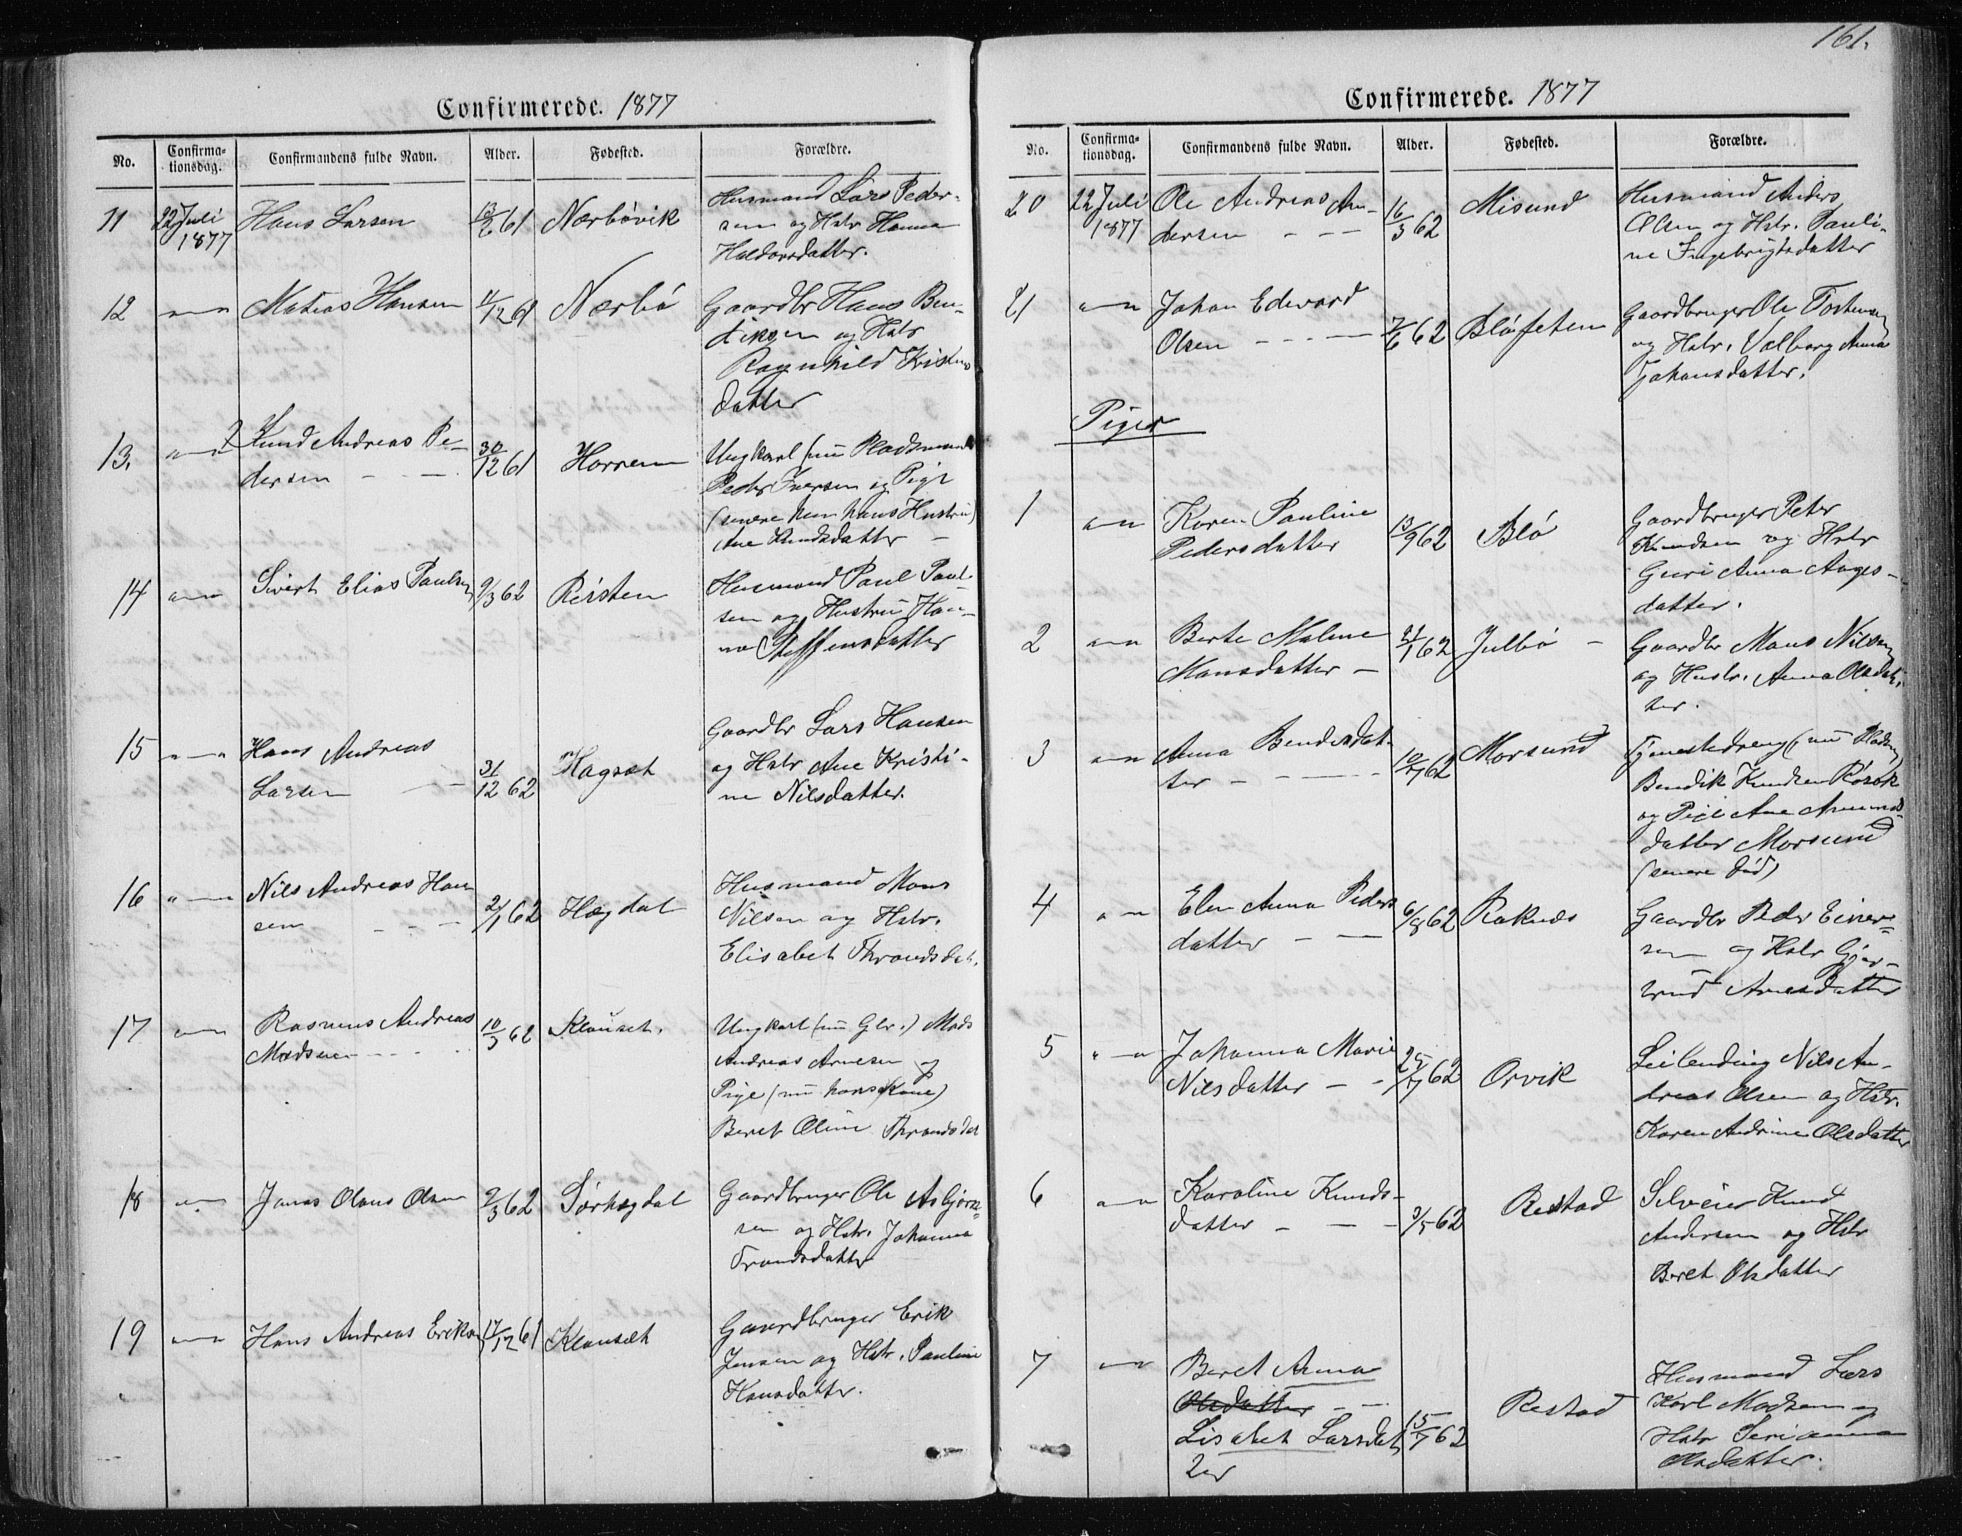 161.
Confirmerede. 1877
No. Confirmationsdag. Confirmandens fulde Navn. Alder. Fødested. Forældre.
11 22 Juli 1877 Hans Larsen 13/6 61 Nærbøvik Husmand Lars Peder-
sen og Hstr Hanna
Haldorsdatter.
12 Matias Hansen 4/12 61 Nærbø Gaardbr Hans Ben-
diksen og Hstr
Ragnhild Kristens
datter
13. Knud Andreas Pe- 30/12 61 Horrem Ungkarl (nu Pladsmand
dersen Peder Iversen og Pige
(senere hans Hustru)
Ane Knudsdatter
14 Sivert Elias Paulsen 9/3 62 Reisten Husmand Paul Paul-
sen og Hustru Han-
na Steffensdatter
15 Hans Andreas Gaardbr Lars Hansen
Larsen 31/12 62 Hagset og Hstr Ane Kristi-
ne Nilsdatter.
16 Nils Andreas Han 2/1 62 Hægdal Husmand Mons
sen Nilsen og Hstr.
Elisabet Throndsdat.
17 Rasmus Andreas 10/3 62 Klauset. Ungkarl (nu Gbr.) Mads
Madsen Andreas Arnesen og
Pige (nu hans Kone)
Beret Oline Throndsdat
18 Jonas Olaus Olsen 9/3 62 Sørhægdal Gaardbruger Ole Asbjørn-
sen og Hstr. Johanna
Trondsdatter
19 Hans Andreas Eriksen 17/12 61 Klausæt Gaardbruger Erik
Jensen og Hstr. Pauline
Hansdatter.
Confirmerede. 1877
No. Confirmationsdag. Confirmandens fulde Navn. Alder. Fødested. Forældre.
20 22 Juli 1877 Ole Andreas An- 16/3 62 Misund Husmand Anders
dersen Olsen og Hstr. Pauli-
ne Ingebrigtsdatter
21 Johan Edvard Gaardbruger Ole Tostensen
Olsen 7/6 62 Bløfeten og Hstr. Valborg Anna
Johansdatter.
Piger
1 Karen Pauline 13/9 62 Blø Gaardbruger Peter
Pedersdatter Knudsen og Hstr
Guri Anna Aages-
datter.
2 Berte Malene 21/1 62 Julbø Gaardbr Mons Nilsen
Monsdatter og Hustr. Anna Olsdat-
ter.
3 Anna Bendiksdat- 10/7 62 Morsund Tjenestedreng (nu Pladsm)
ter Bendik Knudsen Rørsæt
og Pige Ane Amunds-
datter Morsund
(senere død)
4 Elen Anna Peders 6/8 62 Raknes Gaardbr Peder Einer-
datter sen og Hstr Gjer-
trud Arnesdatter
5 Johanna Marie 25/7 62 Orvik Leilending Nils An-
Nilsdatter dreas Olsen og Hstr.
Karen Andrine Olsdatter
6 Karoline Knuds- 9/5 62 Restad Selveier Knud
datter Andersen og Hstr
Beret Olsdatter
7 Beret Anna Husmand Lars
Olsdatter Restad Karl Madsen og
Lisabet Larsdat 15/7 62 Hstr Serianna
ter Olsdatter.